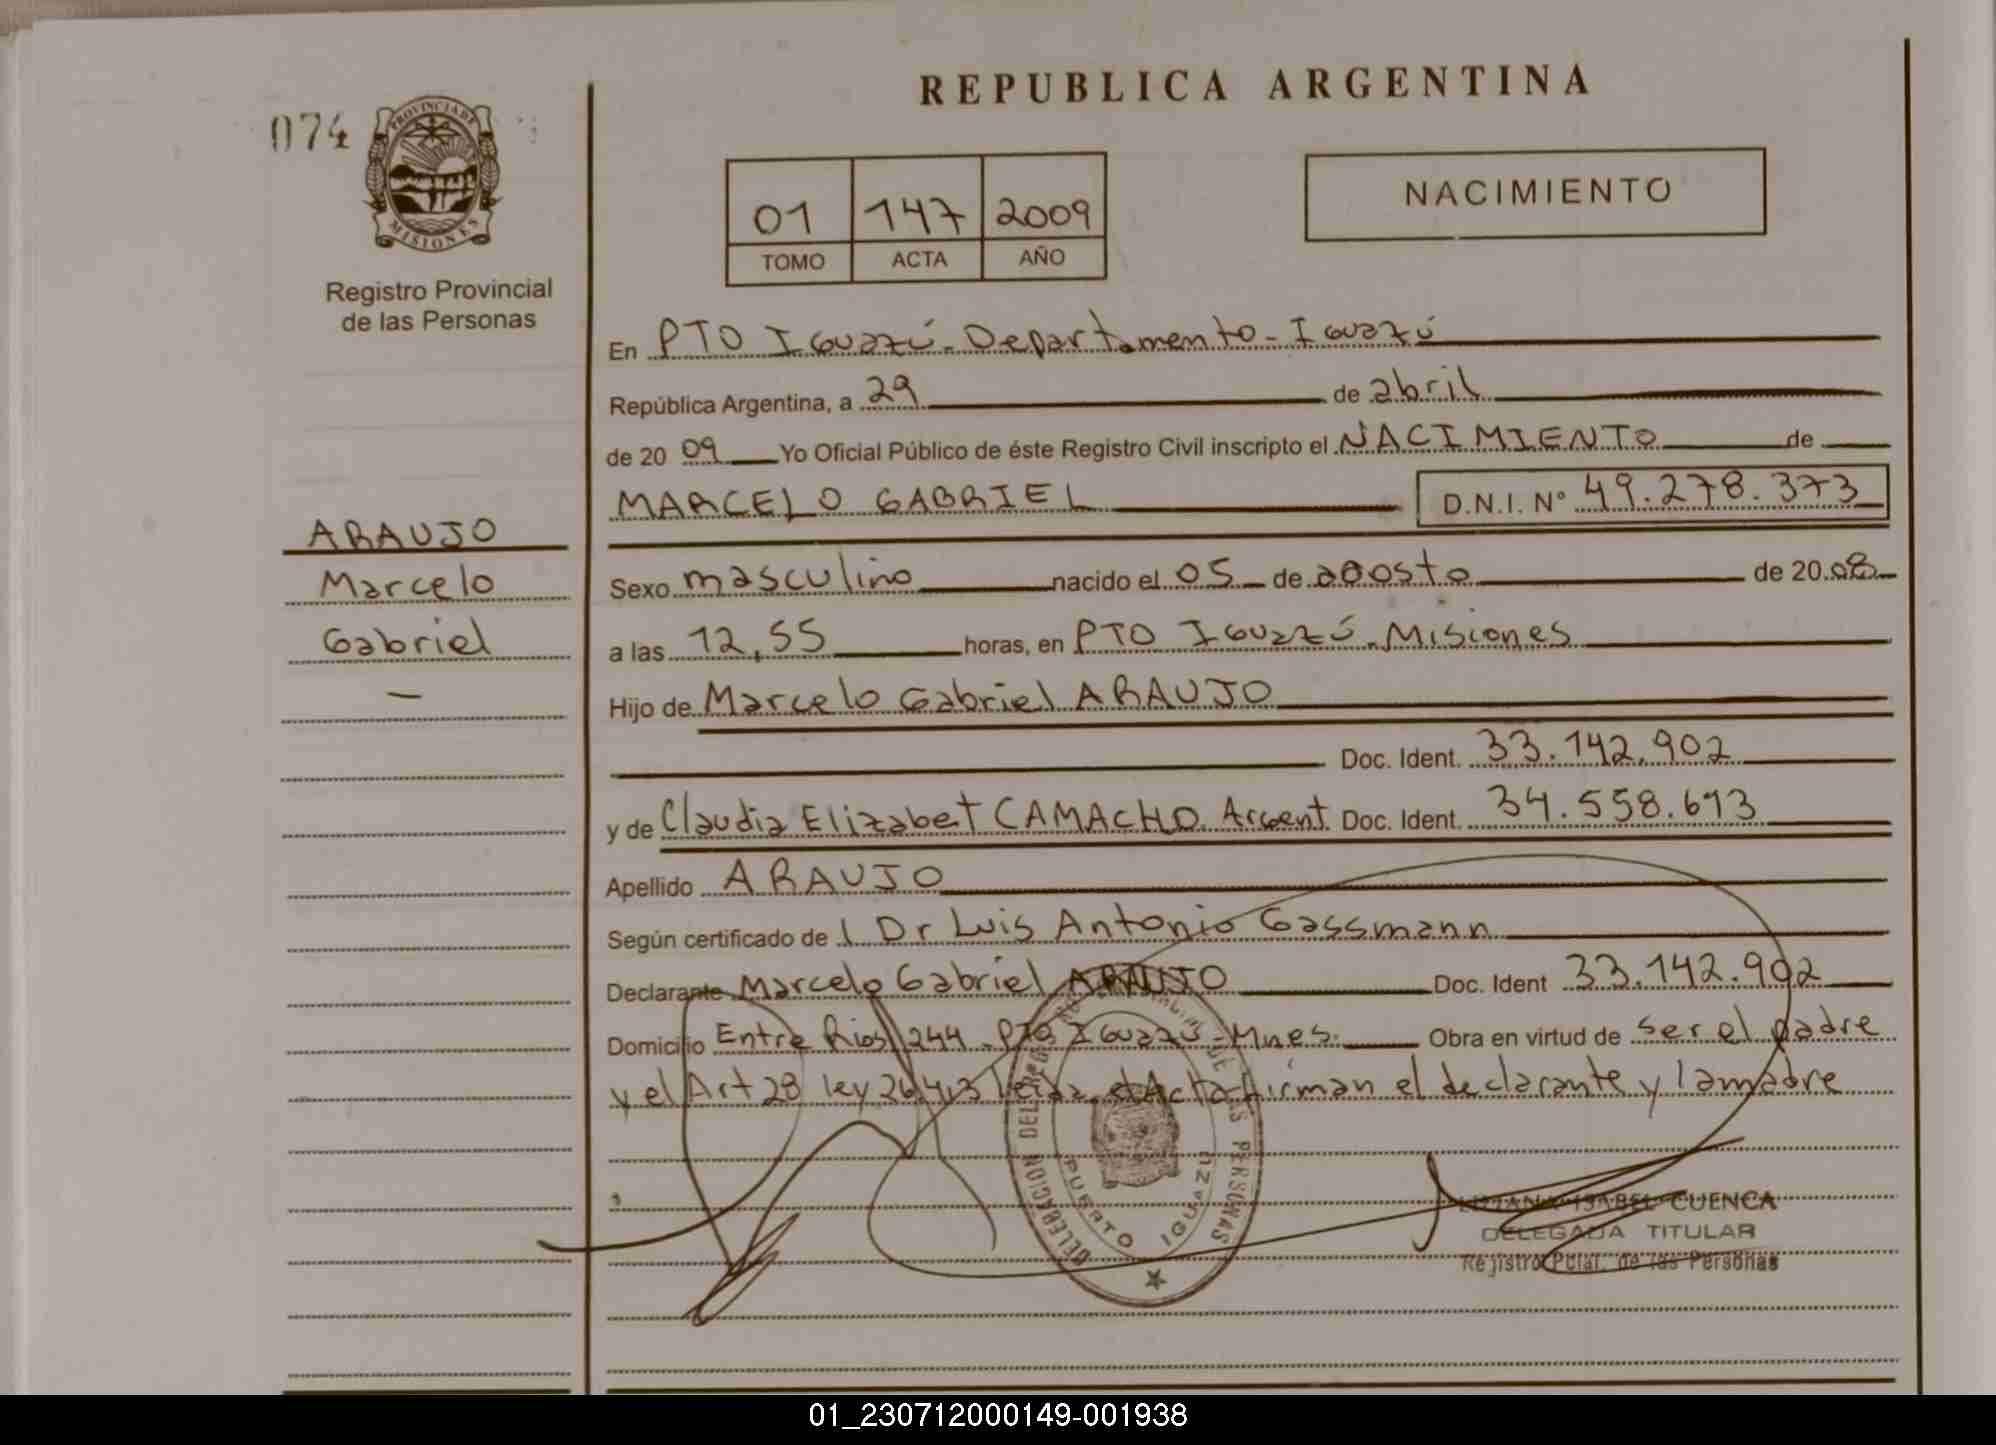 REPUBLICA ARGENTINA
074
PROVINCIA DE MISIONES
Registro Provincial
de las Personas
01 147 2009
TOMO ACTA AÑO
NACIMIENTO
En PTO Iguazú - Departamento - Iguazú
República Argentina, a 29 de abril
de 20 09 Yo Oficial Público de éste Registro Civil inscripto el NACIMIENTO de
MARCELO GABRIEL D.N.I. Nº 49.278.373
ARAUJO
Marcelo
Gabriel
—
Sexo masculino nacido el 05 de agosto de 20 08
a las 12,55 horas, en PTO Iguazú - Misiones
Hijo de Marcelo Gabriel ARAUJO
Doc. Ident. 33.142.902
y de Claudia Elizabet CAMACHO Argent Doc. Ident. 34.558.693
Apellido ARAUJO
Según certificado de l Dr Luis Antonio Gassmann
Declarante Marcelo Gabriel ARAUJO Doc. Ident 33.142.902
Domicilio Entre Rios 244 - PTO Iguazú - Mnes. Obra en virtud de ser el padre
y el Art 28 ley 26413 leida el Acta firman el declarante y la madre
DELEGACION DEL REGISTRO PROVINCIAL DE LAS PERSONAS
PUERTO IGUAZU
LILIANA ISABEL CUENCA
DELEGADA TITULAR
Registro Pcial. de las Personas
01_230712000149-001938